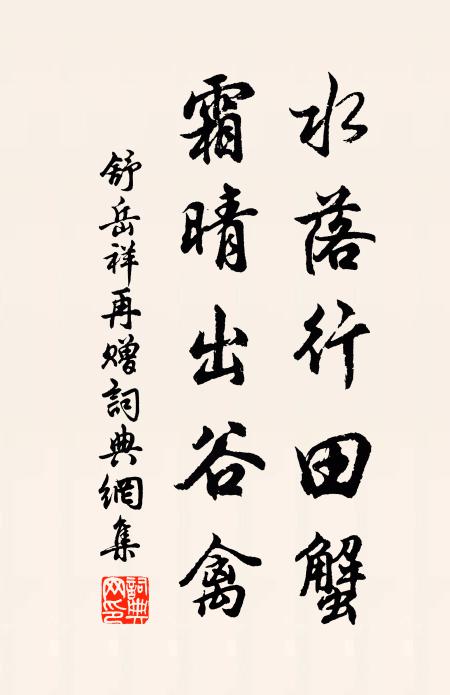 水落行田蟹
霜晴出谷禽
舒岳祥再赠詞典網集
詞典網印